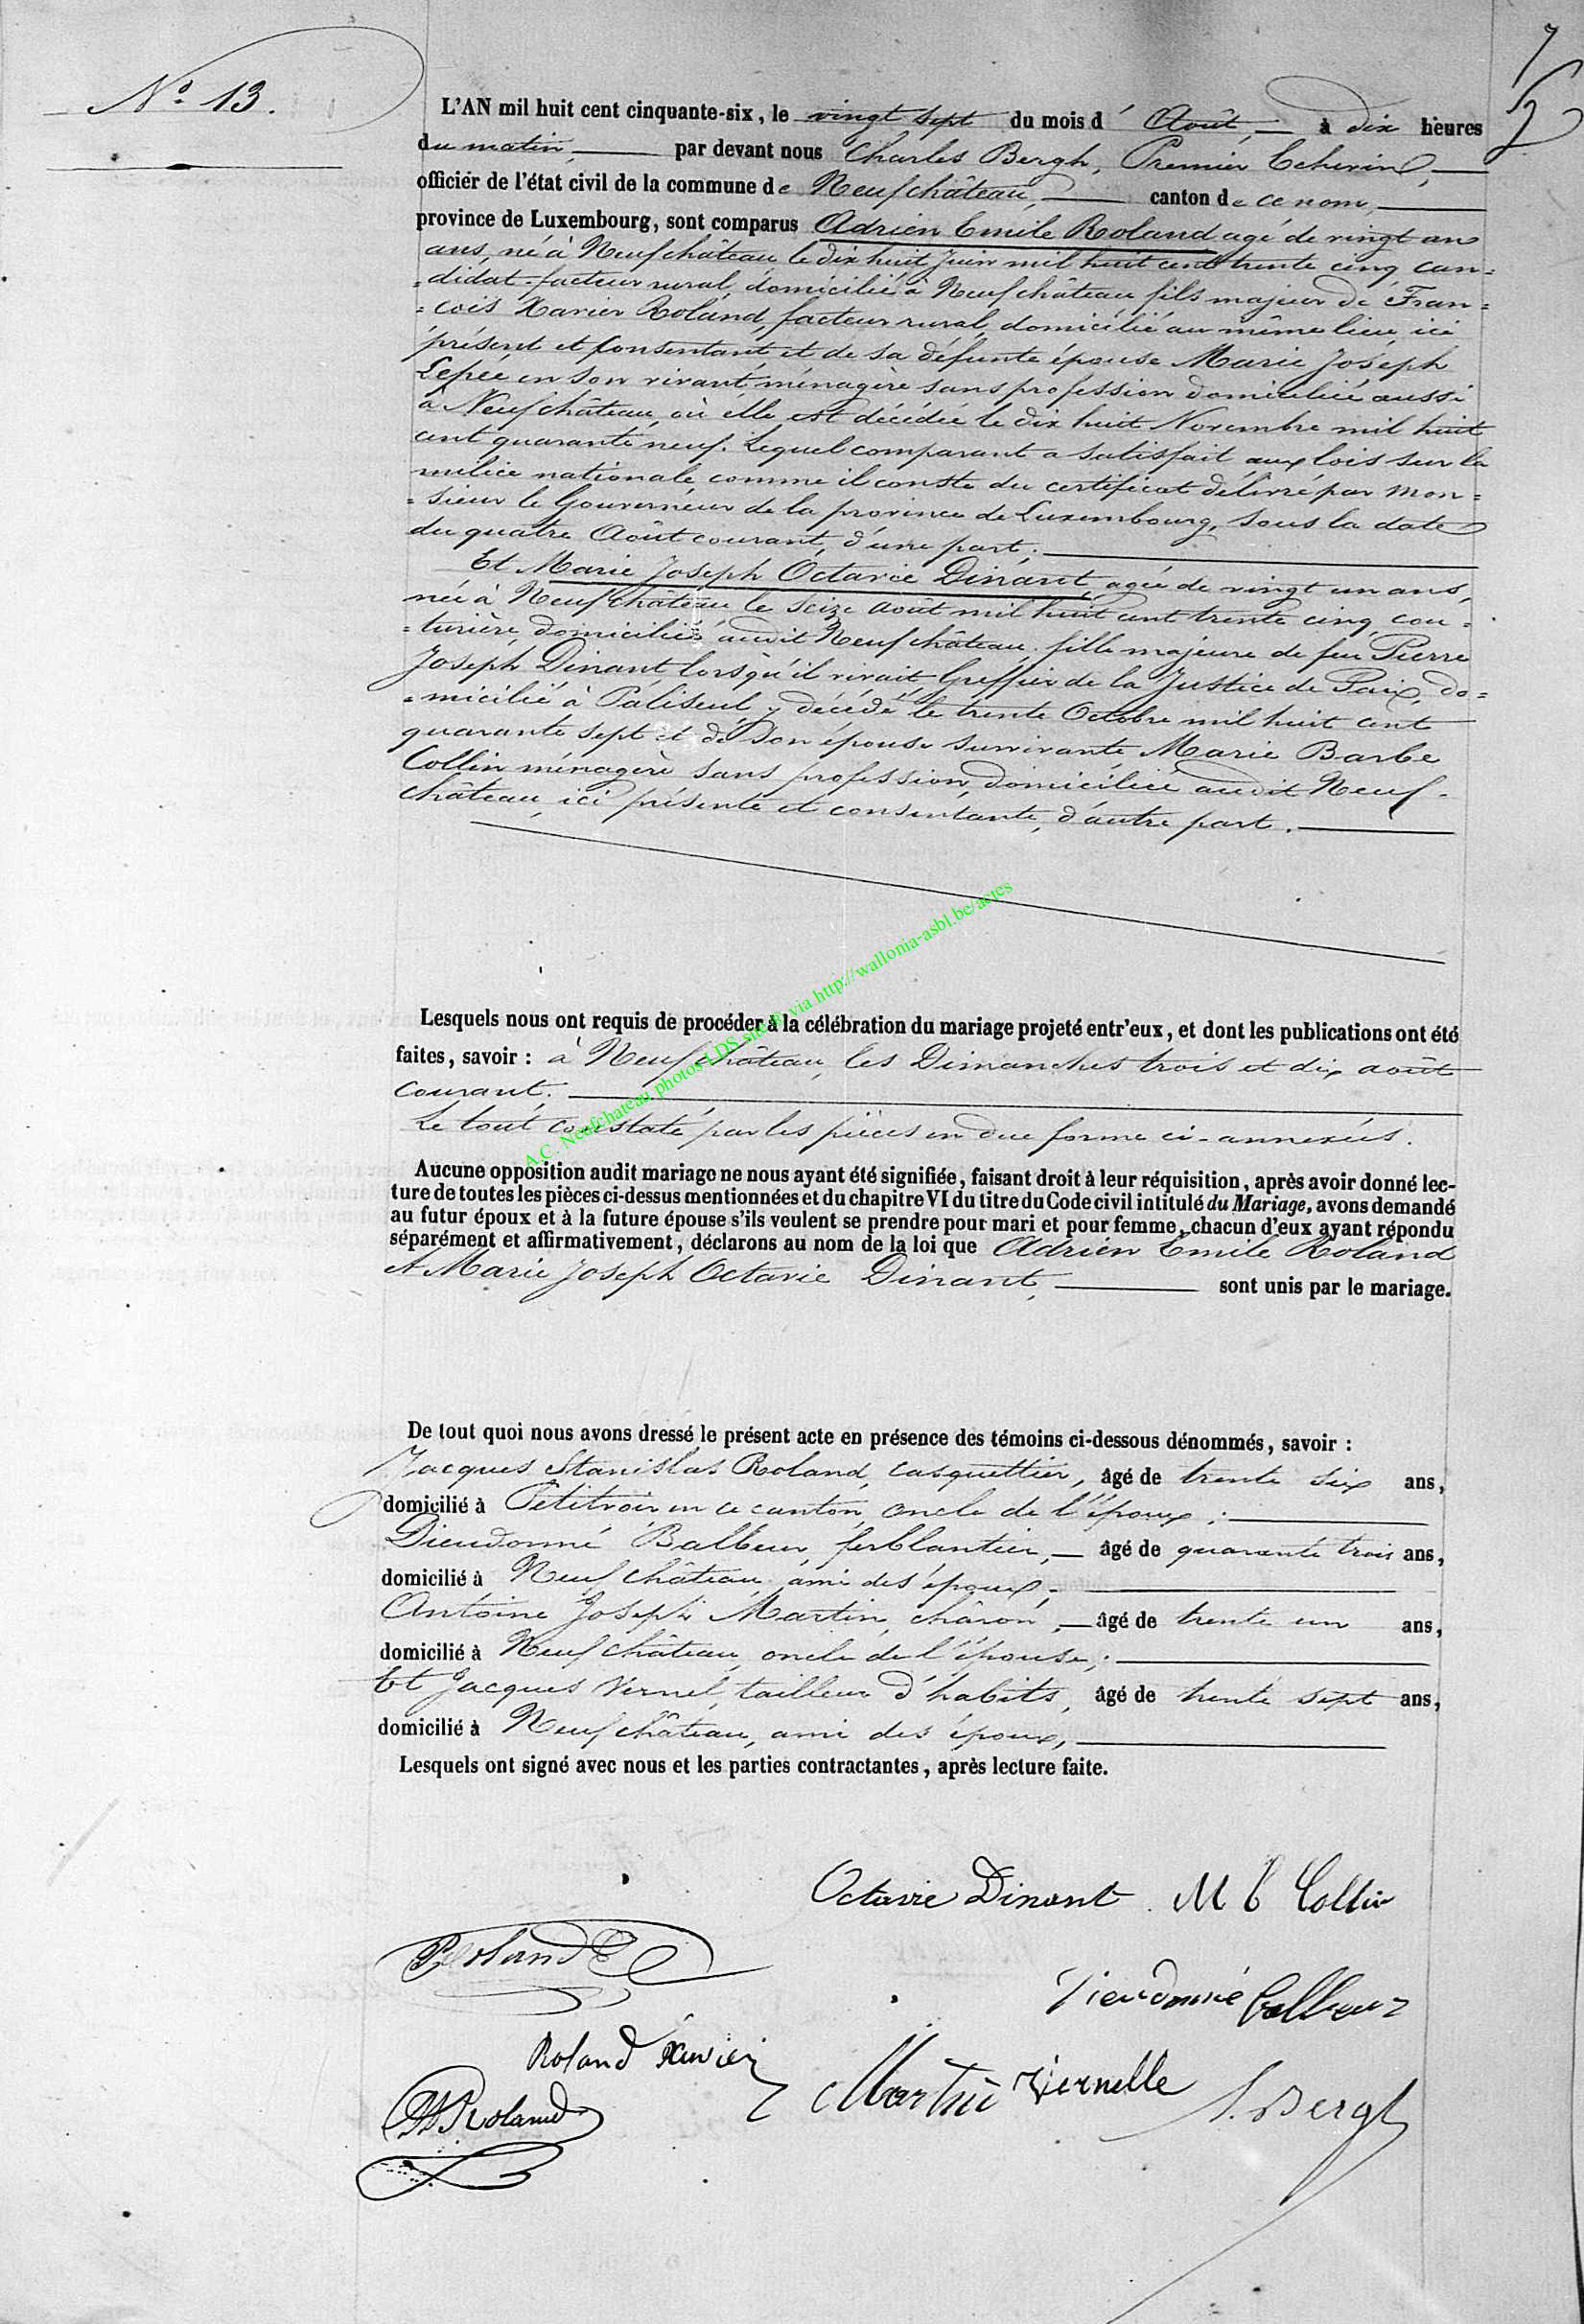 N° 13.
L'AN mil huit cent cinquante-six, le vingt sept du mois d' Août, à dix heures
du matin, par devant nous Charles Bergh, Premier Echevin,
officier de l'état civil de la commune de Neufchâteau, canton de ce nom,
province de Luxembourg, sont comparus Adrien Emile Roland agé de vingt un
ans, né à Neufchâteau le dix huit Juin mil huit cent trente cinq can=
=didat-facteur rural, domicilié à Neufchâteau fils majeur de Fran=
=cois Xavier Roland, facteur rural, domicilié au même lieu, ici
présent et consentant, et de sa défunte épouse Marie Joseph
Lepée en son vivant ménagère sans profession domiciliée aussi
à Neufchâteau, où elle est décédée le dix huit Novembre mil huit
cent quarante neuf. Lequel comparant a satisfait aux lois sur la
milice nationale comme il conste du certificat délivré par Mon=
=sieur le Gouverneur de la province de Luxembourg, sous la date
du quatre Août courant, d'une part;
Et Marie Joseph Octavie Dinant, agée de vingt un ans,
née à Neufchâteau le seize août mil huit cent trente cinq, cou=
=turière, domiciliée audit Neufchâteau, fille majeure de feu Pierre
Joseph Dinant lorsqu'il vivait Greffier de la Justice de Paix, do=
=micilié à Paliseul y décédé le trente Octobre mil huit cent
quarante sept et de son épouse survivante Marie Barbe
Collin ménagère sans profession, domiciliée audit Neuf-
château, ici présente et consentante, d'autre part.
Lesquels nous ont requis de procéder à la célébration du mariage projeté entr'eux, et dont les publications ont été
faites, savoir : à Neufchâteau, les Dimanches trois et dix août
courant.
Le tout constaté par les pièces en due forme ci-annexées.
A.C. Neufchateau photos LDS site ® via http://wallonia-asbl.be/actes
Aucune opposition audit mariage ne nous ayant été signifiée, faisant droit à leur réquisition, après avoir donné lec-
ture de toutes les pièces ci-dessus mentionnées et du chapitre VI du titre du Code civil intitulé du Mariage, avons demandé
au futur époux et à la future épouse s'ils veulent se prendre pour mari et pour femme, chacun d'eux ayant répondu
séparément et affirmativement, déclarons au nom de la loi que Adrien Emile Roland
et Marie Joseph Octavie Dinant, sont unis par le mariage.
De tout quoi nous avons dressé le présent acte en présence des témoins ci-dessous dénommés, savoir :
Jacques Stanislas Roland, casquettier, âgé de trente six ans,
domicilié à Petitvoir en ce canton, oncle de l'époux;
Dieudonné Balbeur, ferblantier, âgé de quarante trois ans,
domicilié à Neufchâteau ami des époux,
Antoine Joseph Martin, châron, âgé de trente un ans,
domicilié à Neufchâteau, oncle de l'épouse;
Et Jacques Vernel, tailleur d'habits, âgé de trente sept ans,
domicilié à Neufchâteau, ami des époux,
Lesquels ont signé avec nous et les parties contractantes, après lecture faite.
Octavie Dinant M B Collin
Roland E
Dieudonné Balbeur
Roland Xavier
Martin Vernelle
Roland
Bergh